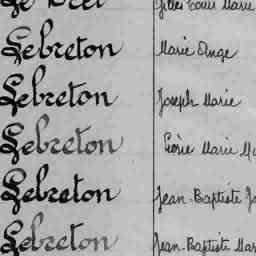 Le Bret Gilles Louis Marie
Lebreton Marie Ange
Lebreton Joseph Marie
Lebreton Pierre Marie
Lebreton Jean-Baptiste
Lebreton Jean-Baptiste Mar